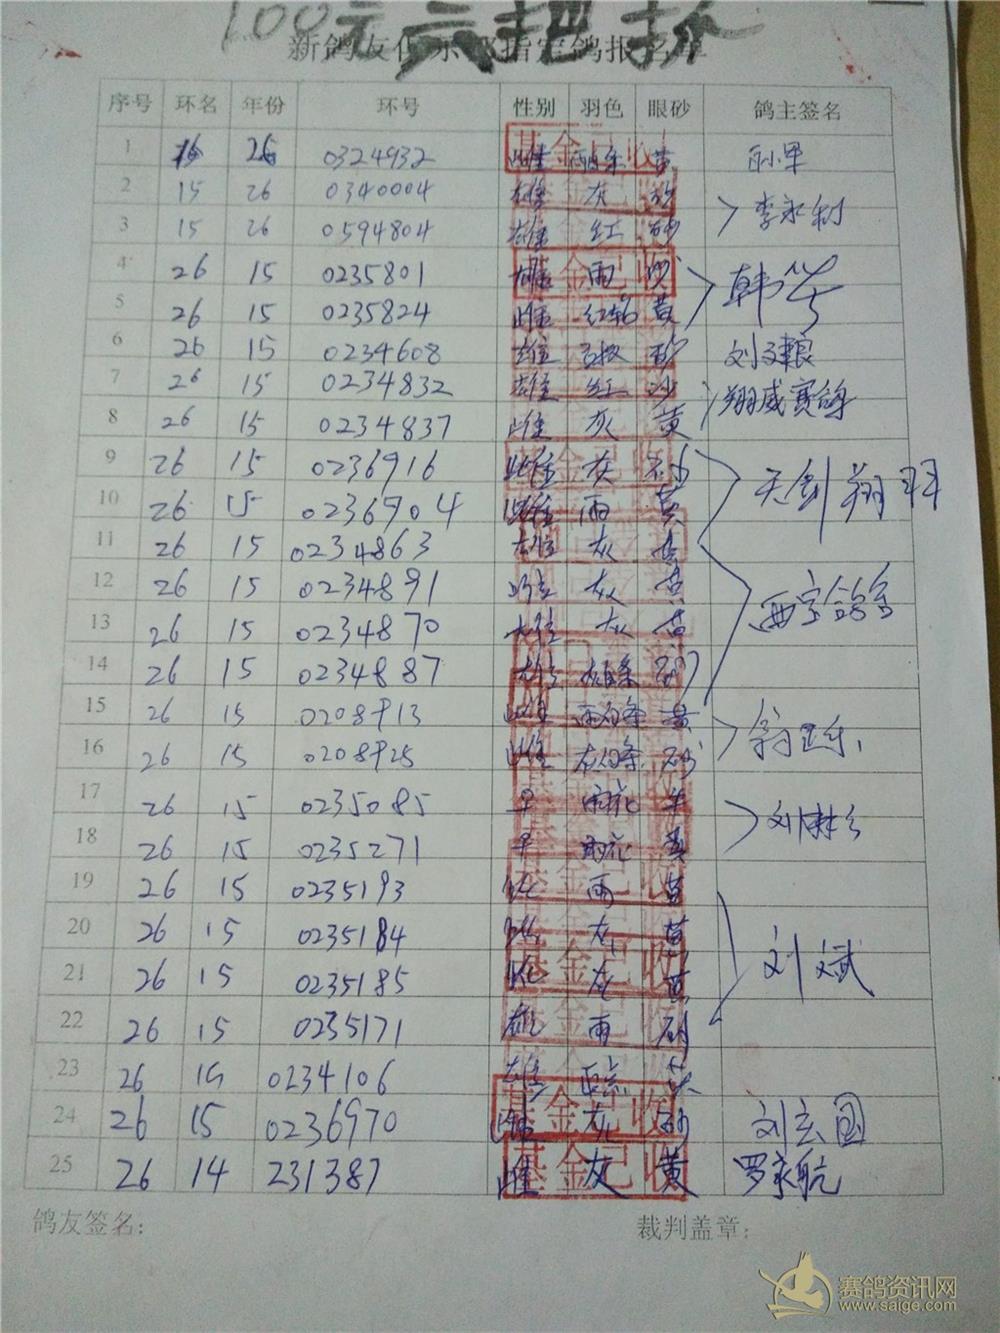 100元
新鸽友俱乐部指定鸽报名单
序号 环名 年份 环号 性别 羽色 眼砂 鸽主签名
1 26 0324932 雌 黄
2 15 26 0340004 雄 灰 砂 李永利
3 15 26 0594804 雄 红 砂
4 26 15 0235801 雄 雨 砂 韩
5 26 15 0235824 雌 红轮 黄
6 26 15 0234608 雄 砂 刘
7 26 15 0234832 雄 红 沙 翔威赛鸽
8 26 15 0234837 雌 灰 黄
9 26 15 0236916 雌 灰 砂 天剑翔羽
10 26 15 0236904 雌 雨 黄
11 26 15 0234863 雄 灰 黄
12 26 15 0234891 灰 黄 西宁鸽舍
13 26 15 0234870 雄 灰 黄
14 26 15 0234887 雄 砂
15 26 15 0208913 雌 雨白条 黄
16 26 15 0208925 雌 灰白条 砂
17 26 15 0235085 早 雨花 牛 刘
18 26 15 0235271 早 雨花 黄
19 26 15 0235193 雨 黄
20 26 15 0235184 灰 黄 刘斌
21 26 15 0235185 灰 黄
22 26 15 0235171 雄 雨 砂
23 26 15 0234106 雄 黄
24 26 15 0236970 雌 灰 砂 刘玄国
25 26 14 231387 雌 灰 黄 罗永航
基金已收
鸽友签名： 裁判盖章：
赛鸽资讯网
www.saige.com